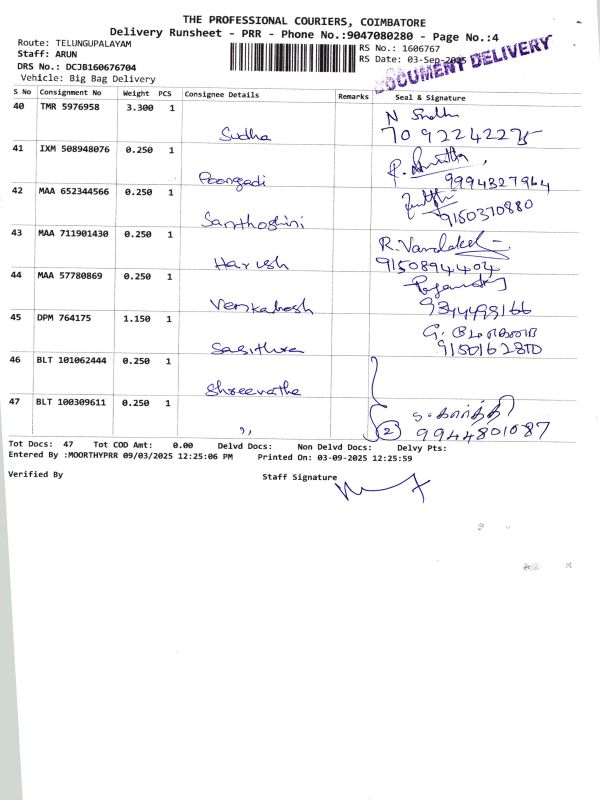 THE PROFESSIONAL COURIERS, COIMBATORE
Delivery Runsheet - PRR - Phone No.:9047080280 - Page No.:4
Route: TELUNGUPALAYAM
RS No.: 1606767
Staff: ARUN
RS Date: 03-Sep-2025
DOCUMENT DELIVERY
DRS No.: DCJB160676704
Vehicle: Big Bag Delivery
S No Consignment No Weight PCS Consignee Details Remarks Seal & Signature
40 TMR 5976958 3.300 1
Sudha 7092242275
41 IXM 508948076 0.250 1
Poongadi 9994327964
42 MAA 652344566 0.250 1
Santhoshini 9150370880
43 MAA 711901430 0.250 1 R.
Harish 9150894404
44 MAA 57780869 0.250 1
Venkatesh 9344499166
45 DPM 764175 1.150 1 G.
Sabithra
46 BLT 101062444 0.250 1
Shreevathe
47 BLT 100309611 0.250 1 ச. கார்த்தி
,, 2 9944801087
Tot Docs: 47 Tot COD Amt: 0.00 Delvd Docs: Non Delvd Docs: Delvy Pts:
Entered By :MOORTHYPRR 09/03/2025 12:25:06 PM Printed On: 03-09-2025 12:25:59
Verified By Staff Signature